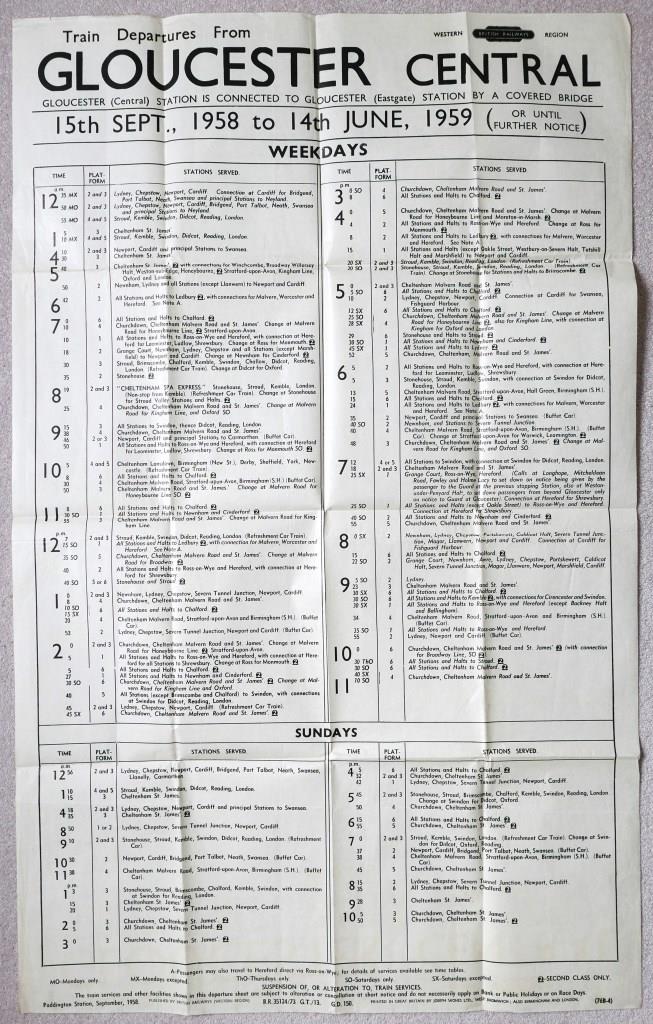 Train Departures From
WESTERN BRITISH RAILWAYS REGION
GLOUCESTER CENTRAL
GLOUCESTER (Central) STATION IS CONNECTED TO GLOUCESTER (Eastgate) STATION BY A COVERED BRIDGE
15th SEPT., 1958 to 14th JUNE, 1959 (OR UNTIL FURTHER NOTICE)
WEEKDAYS
TIME PLAT-FORM STATIONS SERVED.
a.m.
12 35 MX 2 and 3 Lydney, Chepstow, Newport, Cardiff. Connection at Cardiff for Bridgend,
Port Talbot, Neath, Swansea and principal Stations to Neyland.
50 MO 2 and 3 Lydney, Chepstow, Newport, Cardiff, Port Talbot, Neath, Swansea
and principal Stations to Neyland.
55 MO 4 and 5 Stroud, Kemble, Swindon, Didcot, Reading, London.
1 5 3 Cheltenham St. James'.
10 MX 4 and 5 Stroud, Kemble, Swindon, Didcot, Reading, London.
4 2 and 3 Newport, Cardiff and principal Stations to Swansea.
30 3 Cheltenham St. James'.
5 Cheltenham St. James', 2 with connections for Winchcombe, Broadway Willersey
Halt, Weston-sub-Edge, Honeybourne, 2 Stratford-upon-Avon, Kingham Line,
Oxford and London.
50 2 Newnham, Lydney and all Stations (except Llanwern) to Newport and Cardiff.
6 42 2 All Stations and Halts to Ledbury 2, with connections for Malvern, Worcester and
Hereford. See Note A.
7 6 All Stations and Halts to Chalford. 2
Churchdown, Cheltenham Malvern Road and St. James'. Change at Malvern
Road for Honeybourne Line. 2 Stratford-upon-Avon.
10 1 All Stations and Halts to Ross-on-Wye and Hereford, with connection at Here-
ford for Leominster, Ludlow, Shrewsbury. Change at Ross for Monmouth. 2
18 2 Grange Court, Newnham, Lydney, Chepstow and all Stations (except Marsh-
field) to Newport and Cardiff. Change at Newnham for Cinderford. 2
30 Stroud, Brimscombe, Chalford, Kemble, Swindon, Challow, Didcot, Reading,
London. (Refreshment Car). Change at Didcot for Oxford.
35 2 Stonehouse. 2
8 2 and 3 "CHELTENHAM SPA EXPRESS." Stonehouse, Stroud, Kemble, London.
(Non-stop from Kemble). (Refreshment Car). Change at Stonehouse
for Stroud Valley Stations and Halts. 2
25 4 Churchdown, Cheltenham Malvern Road and St. James'. Change at Malvern
Road for Kingham Line, and Oxford SO.
9 All Stations to Swindon, thence Didcot, Reading, London.
Churchdown, Cheltenham Malvern Road and St. James'.
2 or 3 Newport, Cardiff and principal Stations to Carmarthen. (Buffet Car).
1 All Stations and Halts to Ross-on-Wye and Hereford, with connection at Hereford
for Leominster, Ludlow, Shrewsbury. Change at Ross for Monmouth SO. 2
10 5 4 and 5 Cheltenham Lansdown, Birmingham (New St.), Derby, Sheffield, York, New-
castle. (Refreshment Car).
All Stations and Halts to Chalford. 2
Cheltenham Malvern Road, Stratford-upon-Avon, Birmingham (S.H.) (Buffet Car).
50 3 Cheltenham Malvern Road and St. James'. Change at Malvern Road for
Honeybourne Line SO. 2
11 6 All Stations and Halts to Chalford. 2
All Stations and Halts to Newnham and Cinderford. 2
55 3 Cheltenham Malvern Road and St. James'. Change at Malvern Road for King-
ham Line.
p.m.
12 2 and 3 Stroud, Kemble, Swindon, Didcot, Reading, London. (Refreshment Car).
15 SO All Stations and Halts to Ledbury 2, with connection for Malvern, Worcester and
Hereford. See Note A.
35 SO 5 Churchdown, Cheltenham Malvern Road and St. James'. Change at Malvern
Road for Broadway 2
40 2 All Stations and Halts to Ross-on-Wye and Hereford, with connection at Here-
ford for Shrewsbury.
40 SO 5 or 6 Stonehouse and Stroud. 2
1 2 and 3 Newnham, Lydney, Chepstow, Severn Tunnel Junction, Newport, Cardiff.
Churchdown, Cheltenham Malvern Road and St. James'.
10 SO
15 SX 6 All Stations and Halts to Chalford. 2
20 4 Cheltenham Malvern Road, Stratford-upon-Avon and Birmingham (S.H.). (Buffet
Car).
52 2 Lydney, Chepstow, Severn Tunnel Junction, Newport and Cardiff. (Buffet Car).
2 0 2 and 3 Churchdown, Cheltenham Malvern Road and St. James'. Change at Malvern
Road for Honeybourne Line. 2 Stratford-upon-Avon.
5 1 All Stations and Halts to Ross-on-Wye and Hereford, with connection at Here-
ford for all Stations to Shrewsbury. Change at Ross for Monmouth. 2
All Stations and Halts to Chalford. 2
27 1 All Stations and Halts to Newnham and Cinderford. 2
30 SO 6 Churchdown, Cheltenham Malvern Road and St. James'. 2 Change at Mal-
vern Road for Kingham Line and Oxford.
40 5 All Stations (except Brimscombe and Chalford) to Swindon, with connections
at Swindon for Didcot, Reading, London.
45 2 and 3 Lydney, Chepstow, Newport, Cardiff. (Refreshment Car).
45 SX 6 Churchdown, Cheltenham Malvern Road and St. James'. 2
TIME PLAT-FORM STATIONS SERVED.
p.m.
3 0 SO 4 Churchdown, Cheltenham Malvern Road and St. James'.
8 6 All Stations and Halts to Chalford. 2
4 0 5 Churchdown, Cheltenham Malvern Road and St. James'. Change at Malvern
Road for Honeybourne Line and Moreton-in-Marsh. 2
4 2 All Stations and Halts to Ross-on-Wye and Hereford. Change at Ross for
Monmouth. 2
8 2 All Stations and Halts to Ledbury 2, with connections for Malvern, Worcester
and Hereford. See Note A.
15 1 All Stations and Halts (except Oakle Street, Westbury-on-Severn Halt, Tutshill
Halt and Marshfield) to Newport and Cardiff.
20 SX 2 and 3 Stroud, Kemble, Swindon, Reading, London. (Refreshment Car).
20 SO 2 and 3 Stonehouse, Stroud, Kemble, Swindon, Reading, London. (Refreshment
Car). Change at Stonehouse for Stations and Halts to Brimscombe. 2
5 0 2 and 3 Cheltenham Malvern Road and St. James'.
5 SO 6 All Stations and Halts to Chalford. 2
10 2 Lydney, Chepstow, Newport, Cardiff. Connection at Cardiff for Swansea,
Fishguard Harbour.
12 SX 6 All Stations and Halts to Chalford. 2
25 SO Churchdown, Cheltenham Malvern Road and St. James'. Change at Malvern
28 SX Road for Honeybourne Line. 2, also for Kingham Line, with connection at
Kingham for Oxford and London.
29 6 Stonehouse and Halts to Stroud. 2
30 SO 1 All Stations and Halts to Newnham and Cinderford. 2
45 SX 1 All Stations and Halts to Cinderford. 2
52 5 Churchdown, Cheltenham Malvern Road and St. James'.
6 5 2 All Stations and Halts to Ross-on-Wye and Hereford, with connection at Here-
ford for Leominster, Ludlow, Shrewsbury.
5 3 Stonehouse, Stroud, Kemble, Swindon, with connection at Swindon for Didcot,
Reading, London.
13 5 Cheltenham Malvern Road, Stratford-upon-Avon, Hall Green, Birmingham (S.H.)
15 6 All Stations and Halts to Chalford. 2
24 1 All Stations and Halts to Ledbury 2, with connections for Malvern, Worcester
and Hereford. See Note A.
35 2 Newport, Cardiff and principal Stations to Swansea. (Buffet Car).
40 SO 2 Newnham, and Stations to Severn Tunnel Junction.
40 4 Cheltenham Malvern Road, Stratford-upon-Avon, Birmingham (S.H.). (Buffet
Car). Change at Stratford-upon-Avon for Warwick, Leamington. 2
48 3 Churchdown, Cheltenham Malvern Road and St. James'. 2 Change at Mal-
vern Road for Kingham Line, and Oxford SO.
7 12 4 or 5 All Stations to Swindon, with connection at Swindon for Didcot, Reading, London.
18 2 and 3 Cheltenham Malvern Road and St. James'.
25 SX 1 Grange Court, Ross-on-Wye, Hereford. (Calls at Longhope, Mitcheldean
Road, Fawley and Holme Lacy to set down on notice being given by the
passenger to the Guard at the previous stopping Station, also at Weston-
under-Penyard Halt, to set down passengers from beyond Gloucester only
on notice to Guard at Gloucester). Connection at Hereford for Shrewsbury.
25 SO 1 All Stations and Halts (except Oakle Street) to Ross-on-Wye and Hereford.
Connection at Hereford for Shrewsbury.
40 SO 2 All Stations and Halts to Newnham and Cinderford. 2
55 5 Churchdown, Cheltenham Malvern Road and St. James'.
8 0 SX 2 Newnham, Lydney, Chepstow, Portskewett, Caldicot Halt, Severn Tunnel Junc-
tion, Magor, Llanwern, Newport and Cardiff. Connection at Cardiff for
Fishguard Harbour.
15 6 All Stations and Halts to Chalford. 2
22 SO 2 Grange Court, Newnham, Awre, Lydney, Chepstow, Portskewett, Caldicot
Halt, Severn Tunnel Junction, Magor, Llanwern, Newport, Marshfield, Cardiff.
9 5 SO 2 Lydney.
23 3 Cheltenham Malvern Road and St. James'.
30 SX 6 All Stations and Halts to Chalford. 2
30 SO 6 All Stations and Halts to Kemble 2, with connections for Cirencester and Swindon.
30 SX 1 All Stations and Halts to Ross-on-Wye and Hereford (except Backney Halt and
Ballingham).
34 4 Cheltenham Malvern Road, Stratford-upon-Avon and Birmingham (S.H.). (Buffet
Car).
35 SO 1 All Stations and Halts to Ross-on-Wye and Hereford.
55 2 Lydney, Newport and Cardiff. (Buffet Car).
10 0 6 Churchdown, Cheltenham Malvern Road and St. James'. 2 (with connection
for Broadway Line, SO 2).
30 ThO 6 All Stations and Halts to Stroud. 2
30 SO 6 All Stations and Halts to Chalford. 2
40 SX
11 10 SO 4 Churchdown, Cheltenham Malvern Road and St. James'.
SUNDAYS
TIME PLAT-FORM STATIONS SERVED.
a.m.
12 56 2 and 3 Lydney, Chepstow, Newport, Cardiff, Bridgend, Port Talbot, Neath, Swansea,
Llanelly, Carmarthen.
1 10 4 and 5 Stroud, Kemble, Swindon, Didcot, Reading, London.
15 3 Cheltenham St. James'.
4 18 2 and 3 Lydney, Chepstow, Newport, Cardiff and principal Stations to Swansea.
35 3 Cheltenham St. James'. 2
8 50 1 or 2 Lydney, Chepstow, Severn Tunnel Junction, Newport, Cardiff.
9 10 2 and 3 Stroud, Kemble, Swindon, Didcot, Reading, London. (Refreshment
Car).
10 30 2 Newport, Cardiff, Bridgend, Port Talbot, Neath, Swansea. (Buffet Car).
11 38 4 Cheltenham Malvern Road, Stratford-upon-Avon, Birmingham (S.H.). (Buffet
Car).
p.m.
1 3 3 Stonehouse, Stroud, Brimscombe, Chalford, Kemble, Swindon, with connection
at Swindon for Reading, London.
15 3 Cheltenham St. James'. 2
20 1 Lydney, Chepstow, Severn Tunnel Junction, Newport, Cardiff.
2 0 3 Churchdown, Cheltenham St. James'. 2
5 6 All Stations and Halts to Chalford. 2
3 0 3 Churchdown, Cheltenham St. James'. 2
TIME PLAT-FORM STATIONS SERVED.
p.m.
4 5 6 All Stations and Halts to Chalford. 2
32 2 and 3 Churchdown, Cheltenham St. James'.
42 1 Lydney, Chepstow, Severn Tunnel Junction, Newport, Cardiff.
5 45 2 and 3 Stonehouse, Stroud, Brimscombe, Chalford, Kemble, Swindon, Reading, London.
Change at Swindon for Didcot, Oxford.
50 4 Churchdown, Cheltenham St. James'.
6 15 6 All Stations and Halts to Chalford. 2
55 5 Churchdown, Cheltenham St. James'.
7 0 2 and 3 Stroud, Kemble, Swindon, London. (Refreshment Car). Change at Swin-
don for Didcot, Oxford, Reading.
37 2 Newport, Cardiff, Bridgend, Port Talbot, Neath, Swansea. (Buffet Car).
38 4 Cheltenham Malvern Road, Stratford-upon-Avon, Birmingham (S.H.). (Buffet
Car).
45 5 Churchdown, Cheltenham St. James'.
8 15 2 Lydney, Chepstow, Severn Tunnel Junction, Newport, Cardiff.
35 6 All Stations and Halts to Chalford. 2
9 28 3 Cheltenham St. James'.
10 0 3 Churchdown, Cheltenham St. James'. 2
50 5 Churchdown, Cheltenham St. James'. 2
A-Passengers may also travel to Hereford direct via Ross-on-Wye, for details of services available see time tables.
MO-Mondays only. MX-Mondays excepted. ThO-Thursdays only. SO-Saturdays only. SX-Saturdays excepted. 2-SECOND CLASS ONLY.
SUSPENSION OF, OR ALTERATION TO, TRAIN SERVICES.
The train services and other facilities shown in this departure sheet are subject to alteration or cancellation at short notice and do not necessarily apply on Bank or Public Holidays or on Race Days.
Paddington Station, September, 1958. PUBLISHED BY BRITISH RAILWAYS (WESTERN REGION) B.R.35134/73 G.T./13. G.D. 150. PRINTED IN GREAT BRITAIN BY JOSEPH WONES LTD., WEST BROMWICH; ALSO BIRMINGHAM AND LONDON. (76B-4)